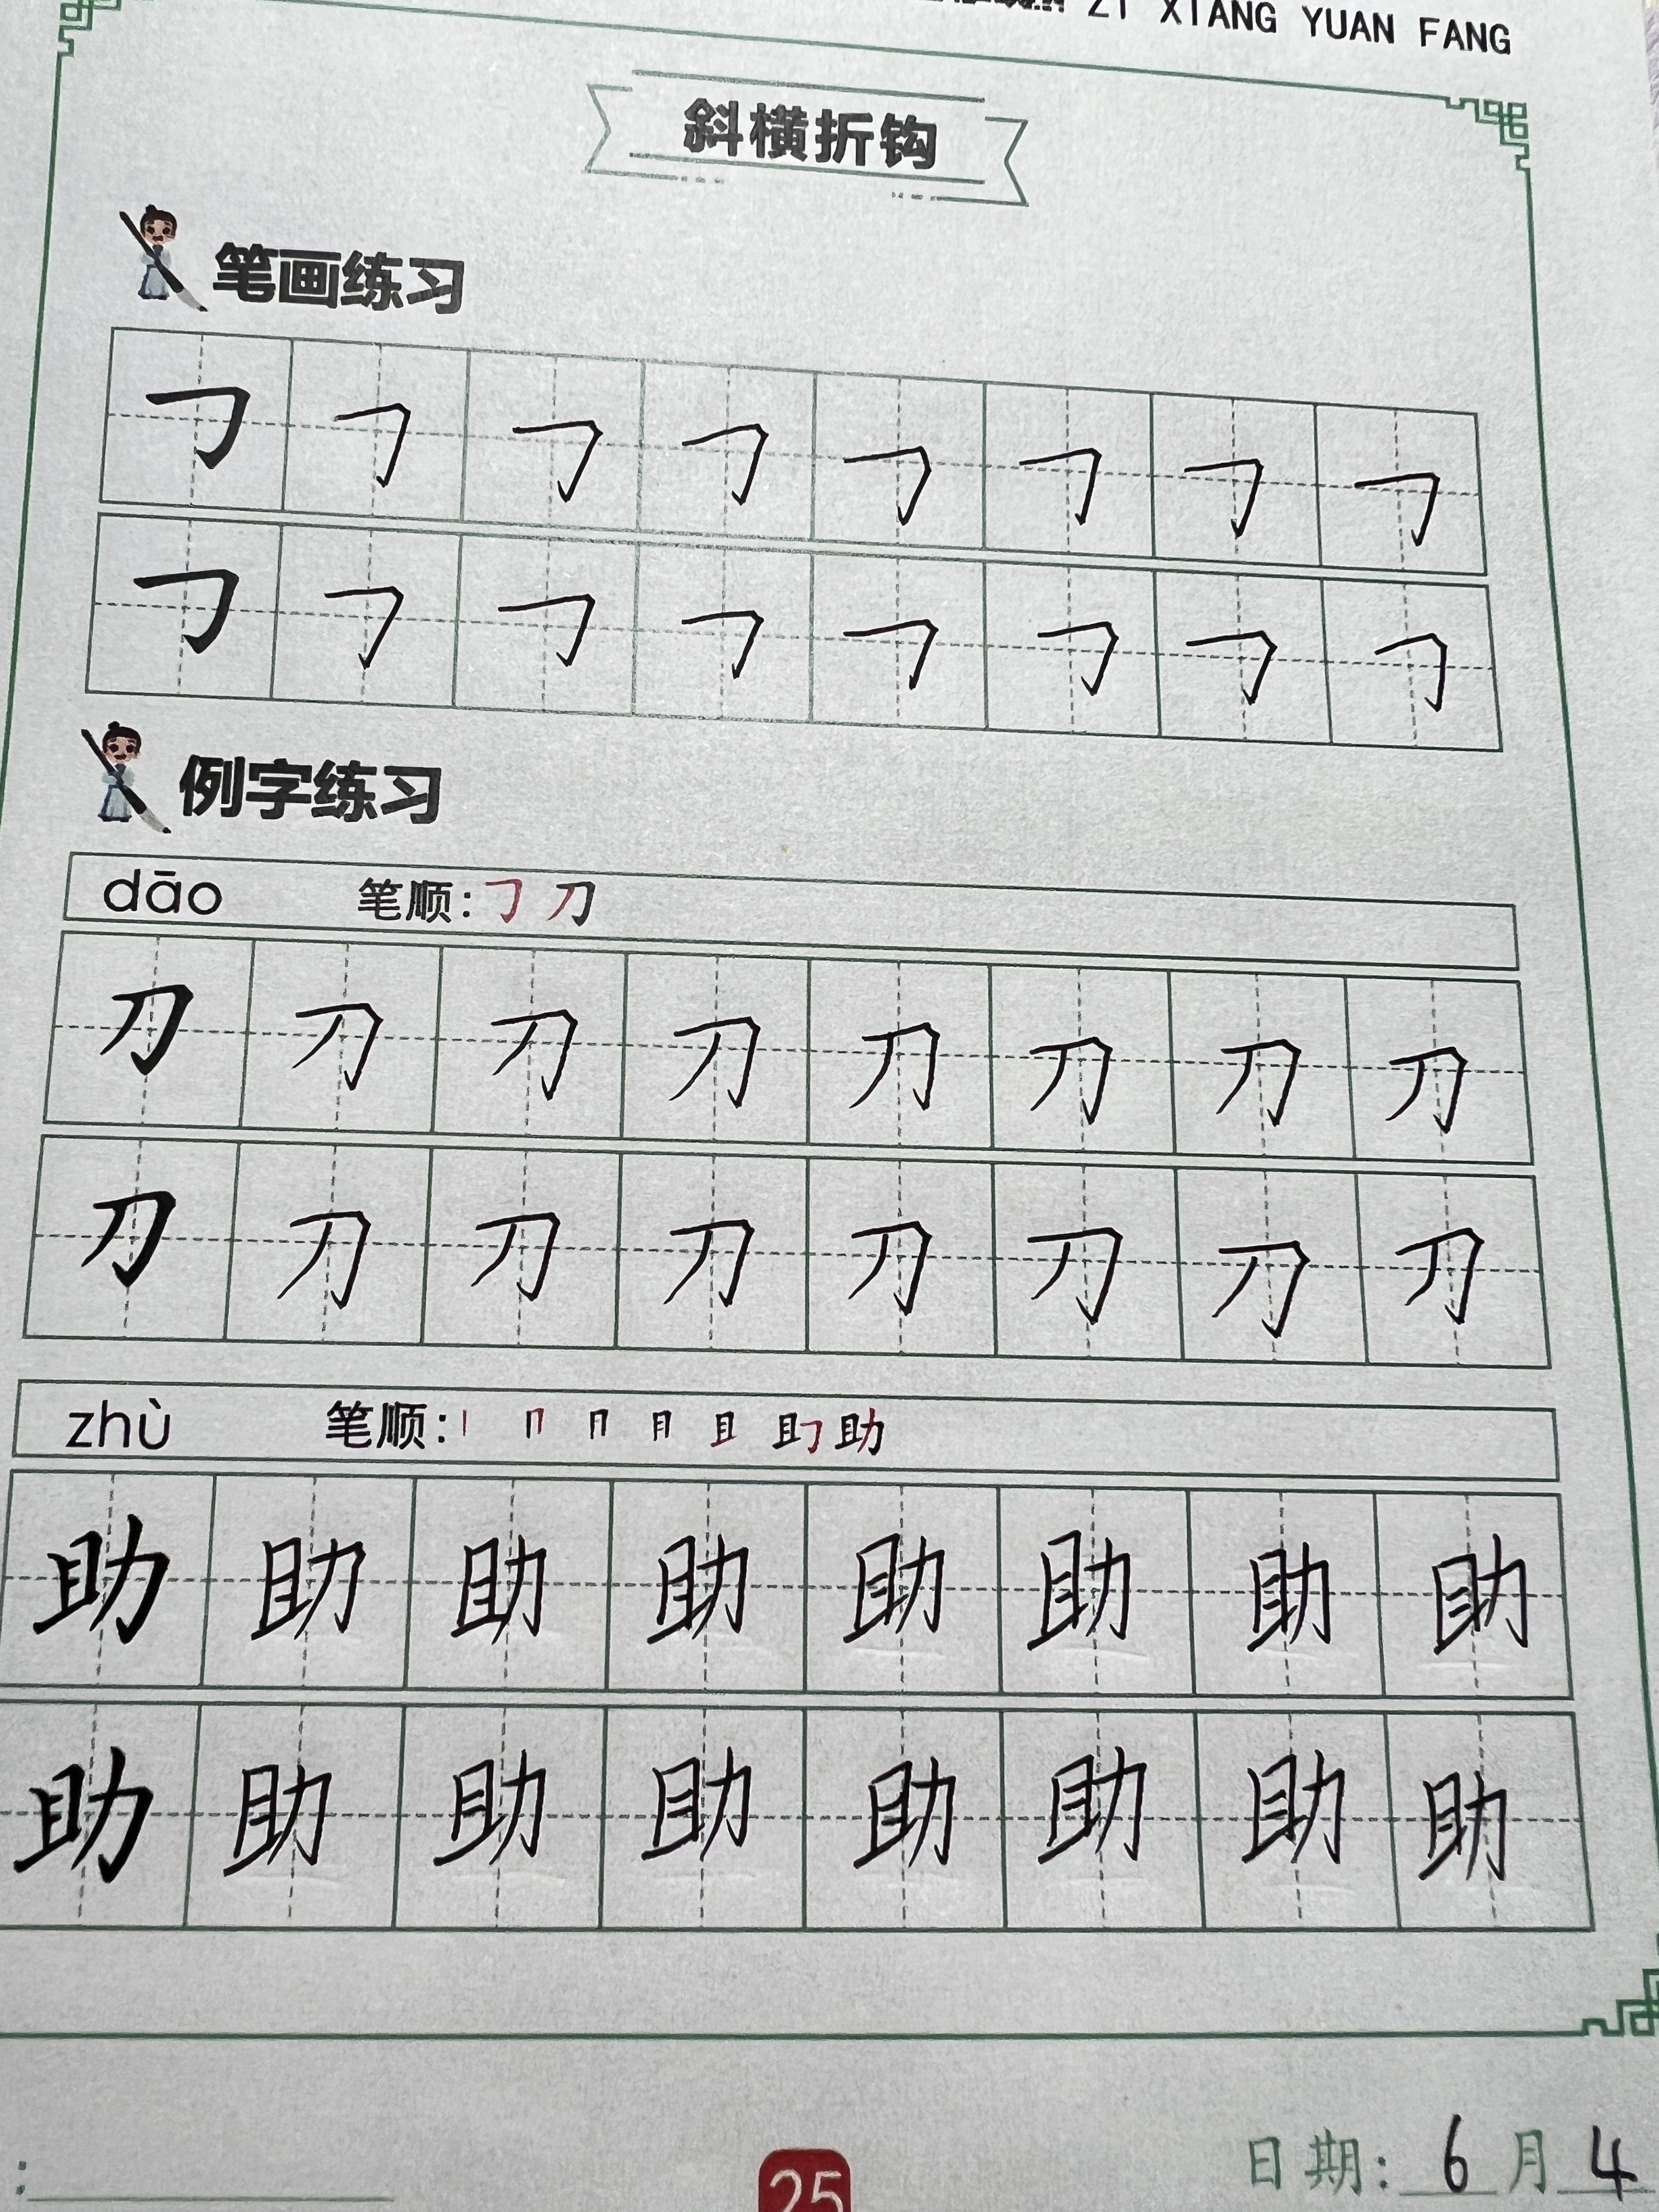 ZI XIANG YUAN FANG
斜横折钩
笔画练习
㇆ ㇆ ㇆ ㇆ ㇆ ㇆ ㇆ ㇆
㇆ ㇆ ㇆ ㇆ ㇆ ㇆ ㇆ ㇆
例字练习
dāo 笔顺:㇆ 刀
刀 刀 刀 刀 刀 刀 刀 刀
刀 刀 刀 刀 刀 刀 刀 刀
zhù 笔顺:丨 冂 冃 月 且 助 助
助 助 助 助 助 助 助 助
助 助 助 助 助 助 助 助
25
日期: 6 月 4